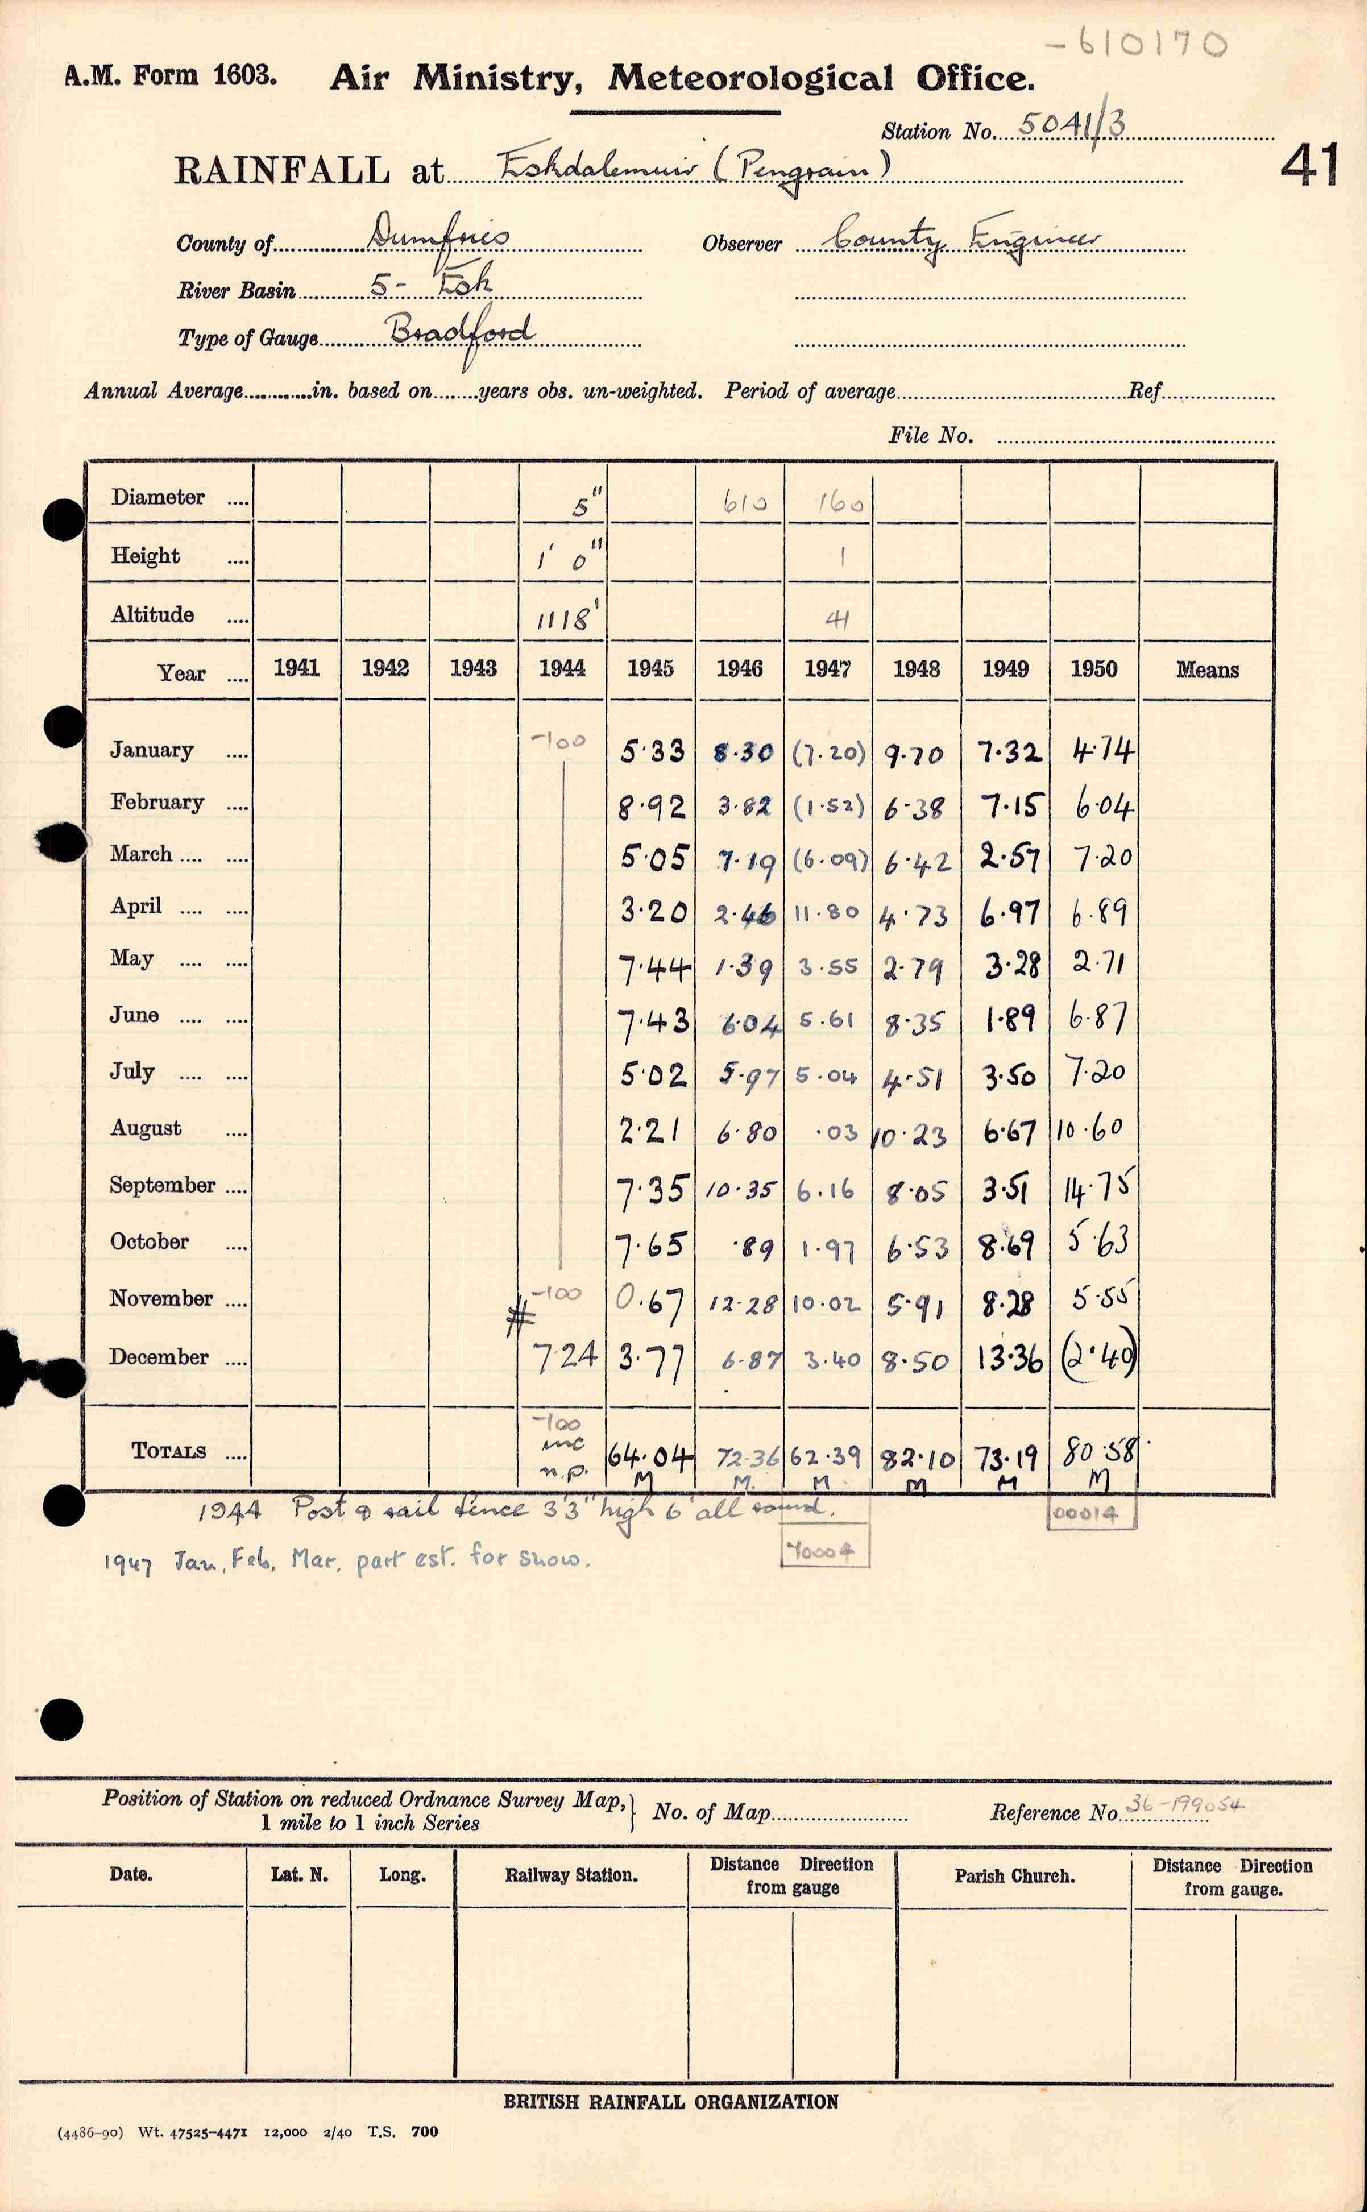 -610170
A.M. Form 1603. Air Ministry, Meteorological Office.
Station No. 5041/3
RAINFALL at Eskdalemuir (Pengrain)
41
County of Dumfries Observer County Engineer
River Basin 5- Esk
Type of Gauge Bradford
Annual Average............in. based on.......years obs. un-weighted. Period of average Ref
File No.
Diameter .... 5" 610 160
Height .... 1' 0" 1
Altitude .... 1118' 41
Year .... 1941 1942 1943 1944 1945 1946 1947 1948 1949 1950 Means
January .... -100 5.33 8.30 (7.20) 9.70 7.32 4.74
February .... 8.92 3.82 (1.52) 6.38 7.15 6.04
March .... .... 5.05 7.19 (6.09) 6.42 2.57 7.20
April .... .... 3.20 2.46 11.80 4.73 6.97 6.89
May .... .... 7.44 1.39 3.55 2.79 3.28 2.71
June .... .... 7.43 6.04 5.61 8.35 1.89 6.87
July .... .... 5.02 5.97 5.04 4.51 3.50 7.20
August .... 2.21 6.80 .03 10.23 6.67 10.60
September .... 7.35 10.35 6.16 8.05 3.51 14.75
October .... 7.65 .89 1.97 6.53 8.69 5.63
November .... -100 0.67 12.28 10.02 5.91 8.28 5.55
#
December .... 7.24 3.77 6.87 3.40 8.50 13.36 (2.40)
-100
TOTALS .... inc 64.04 72.36 62.39 82.10 73.19 80.58
n.p. M M. M M M M
1944 Post & rail fence 3'3" high 6' all round. 00014
1947 Jan, Feb, Mar, part est. for snow. 40004
Position of Station on reduced Ordnance Survey Map, 1 mile to 1 inch Series } No. of Map Reference No. 36-199054
Date. Lat. N. Long. Railway Station. Distance Direction from gauge Parish Church. Distance Direction from gauge.
BRITISH RAINFALL ORGANIZATION
(4486-90) Wt. 47525-4471 12,000 2/40 T.S. 700